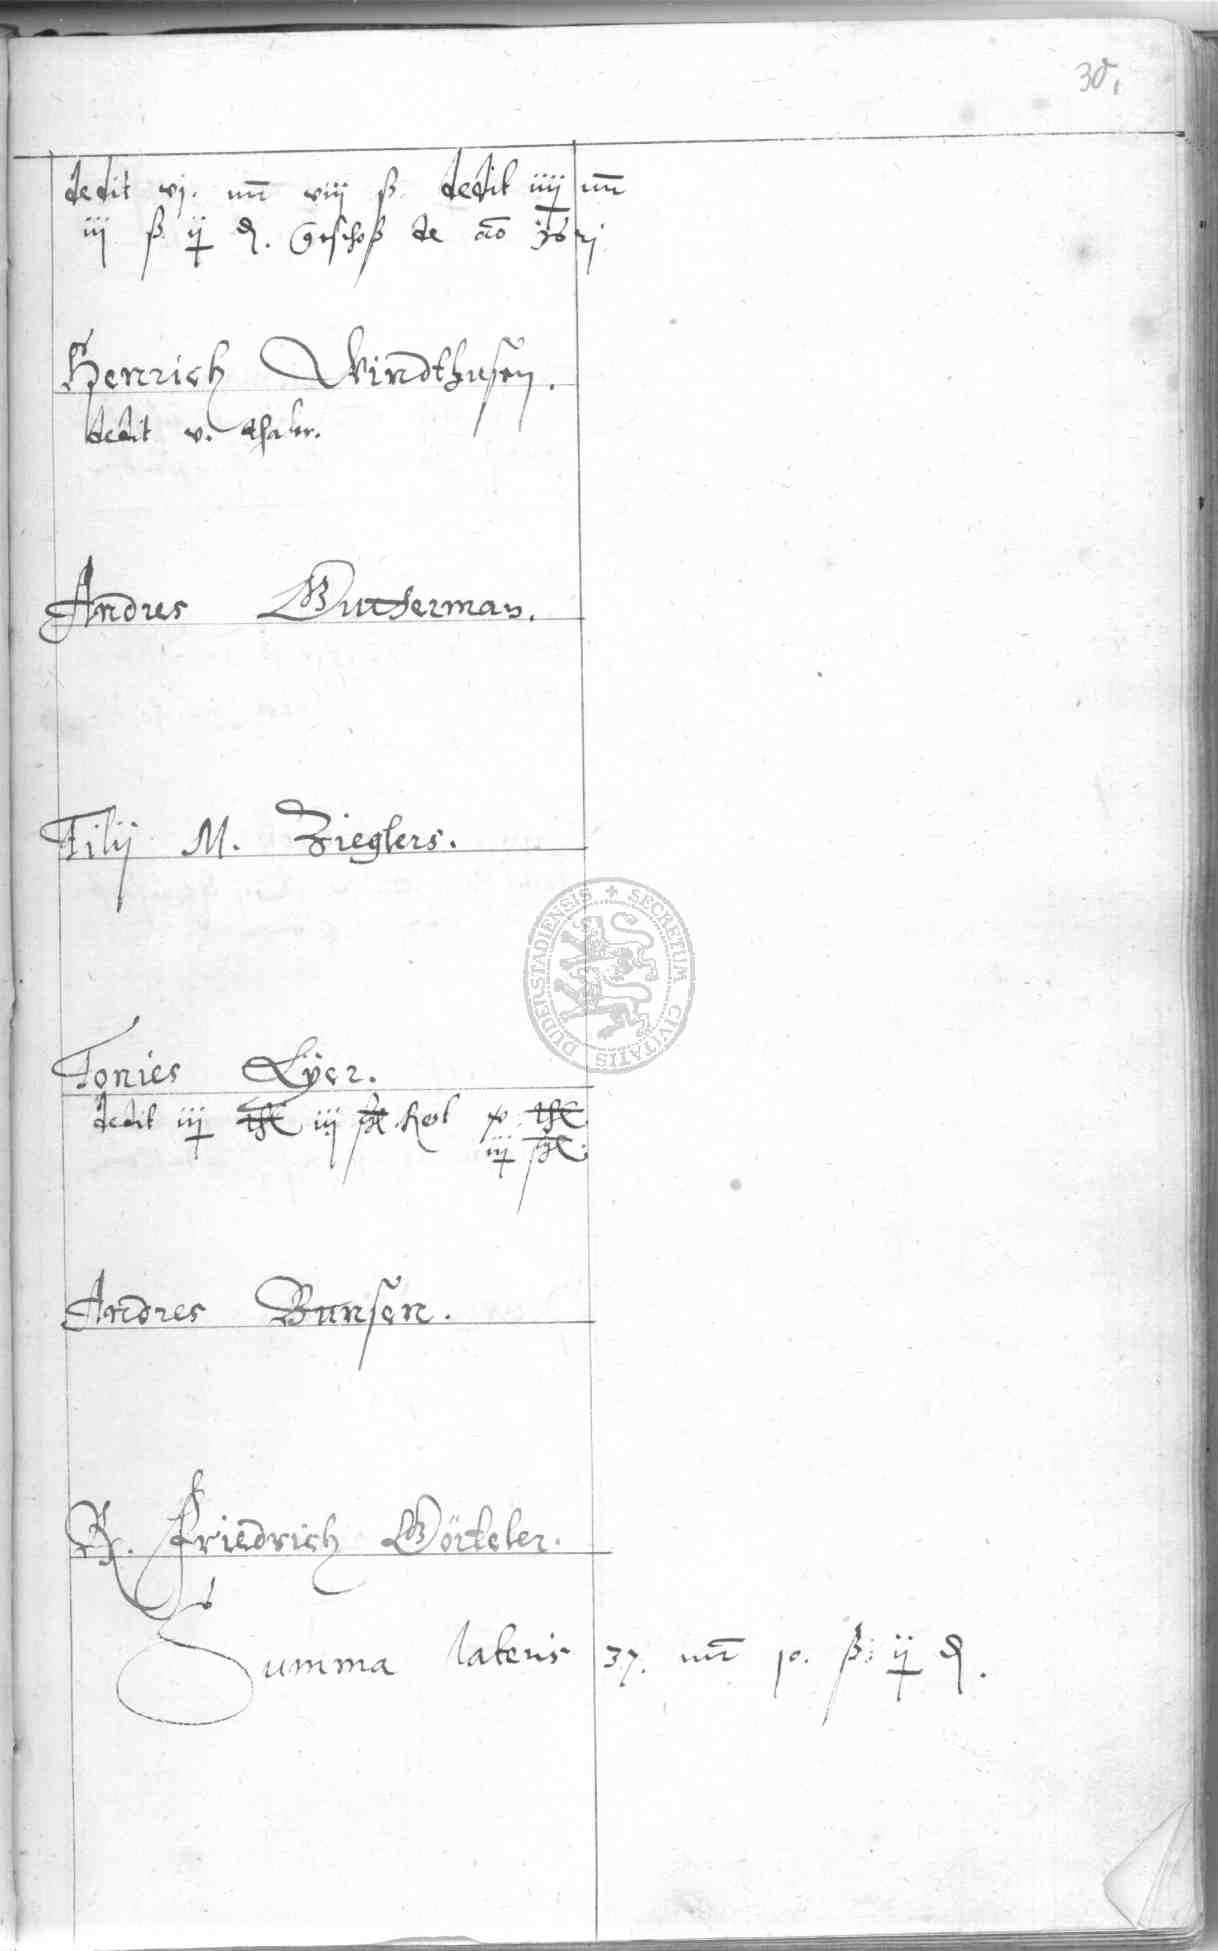 30,
dedit vj. mr viij ß dedit iiij mr
iij ß ij d. Geschoß de ao 1621
Henrich Windthusen.
dedit v. thaler.
Andres Wutherman.
Filij M. Zieglers.
DUDERSTADIENSIS + SECRETUM CIVITATIS
Tonies Lÿer.
dedit iij iij
iij
Andres Bunsen.
H. Friedrich Wörteler.
Summa lateris 37. mr 10. ß: ij d.